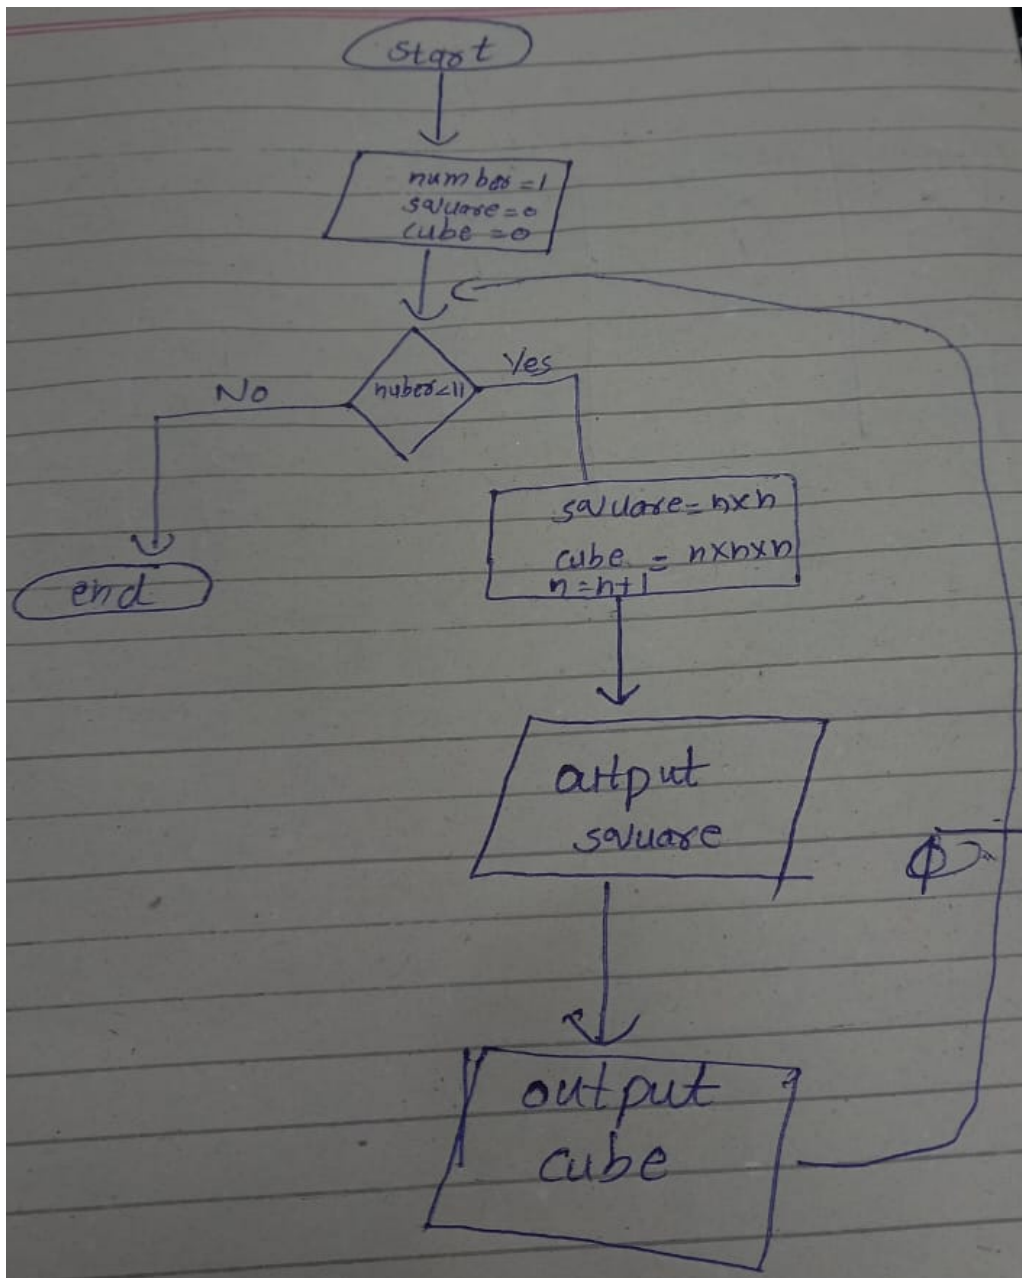 start
number=1
square=0
cube=0
nuber<11
Yes
No
square=n×n
cube = n×n×n
n=n+1
end
output
square
output
cube